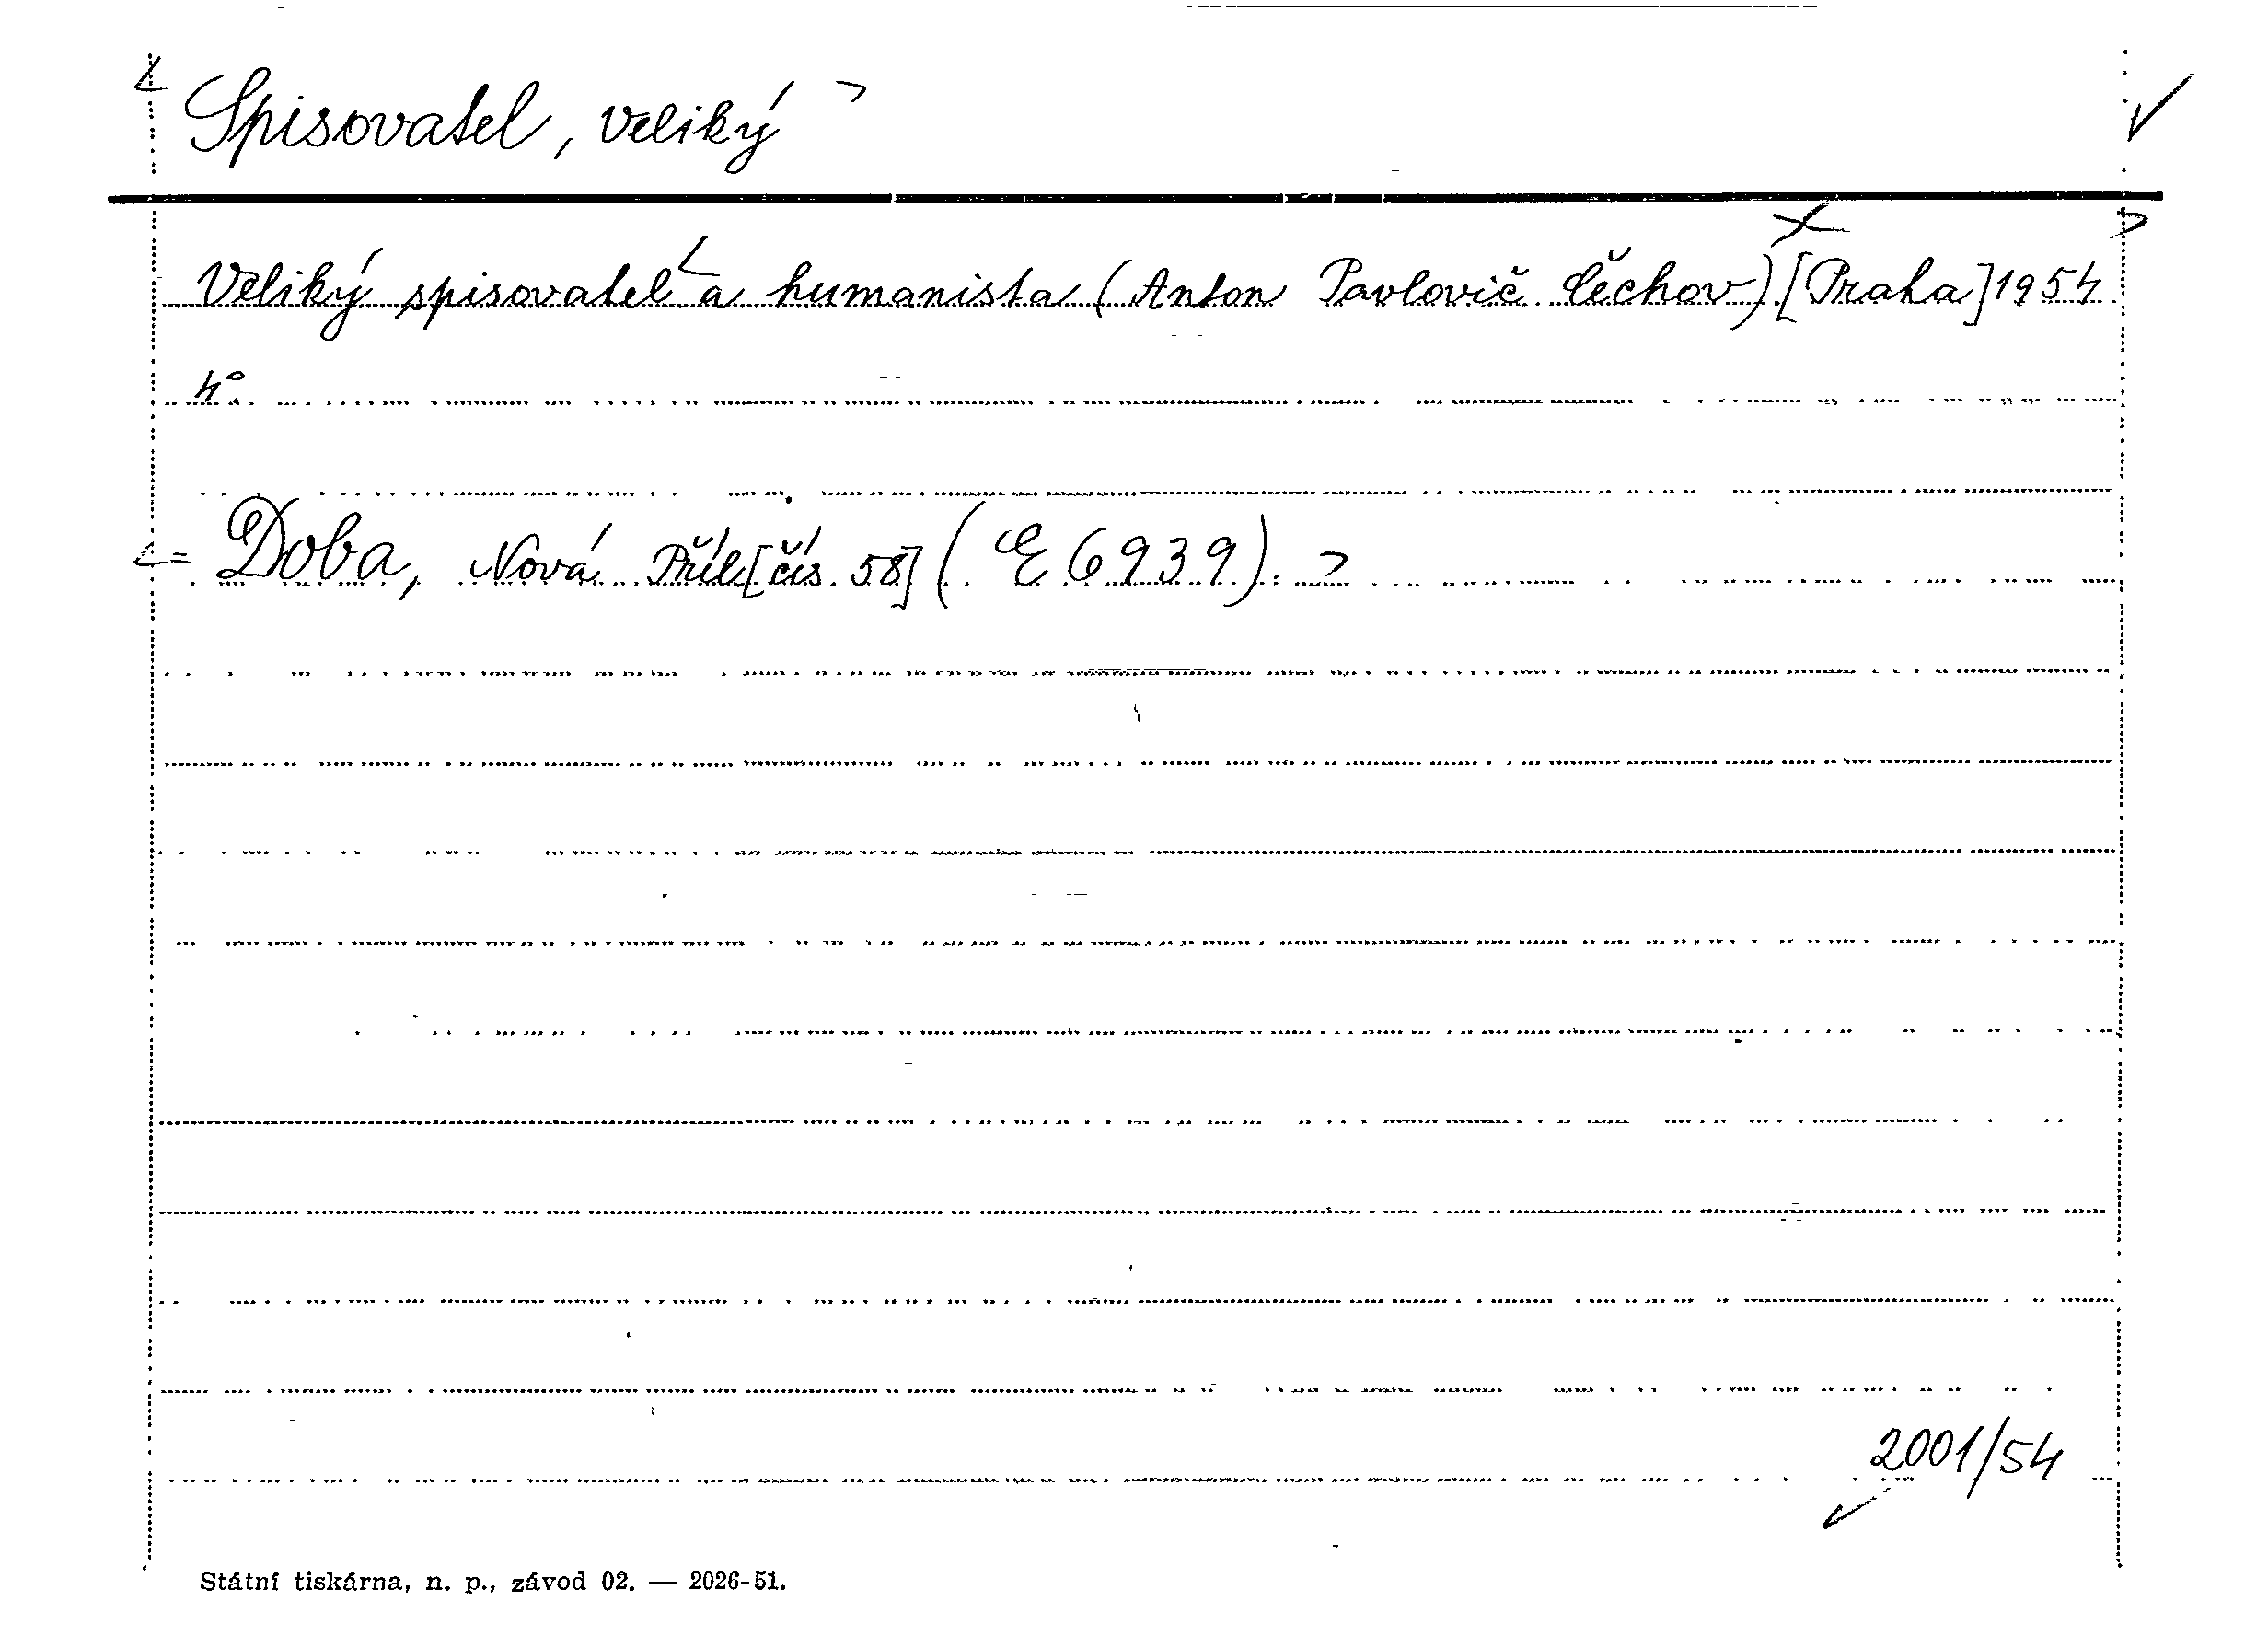 Spisovatel, veliký
Veliký spisovatel a humanista (Anton Pavlovič Čechov) [Praha] 1954
4°.
= Doba, Nová Příl. [čís. 58] (E 6939).
2001/54
Státní tiskárna, n. p., závod 02. — 2026-51.